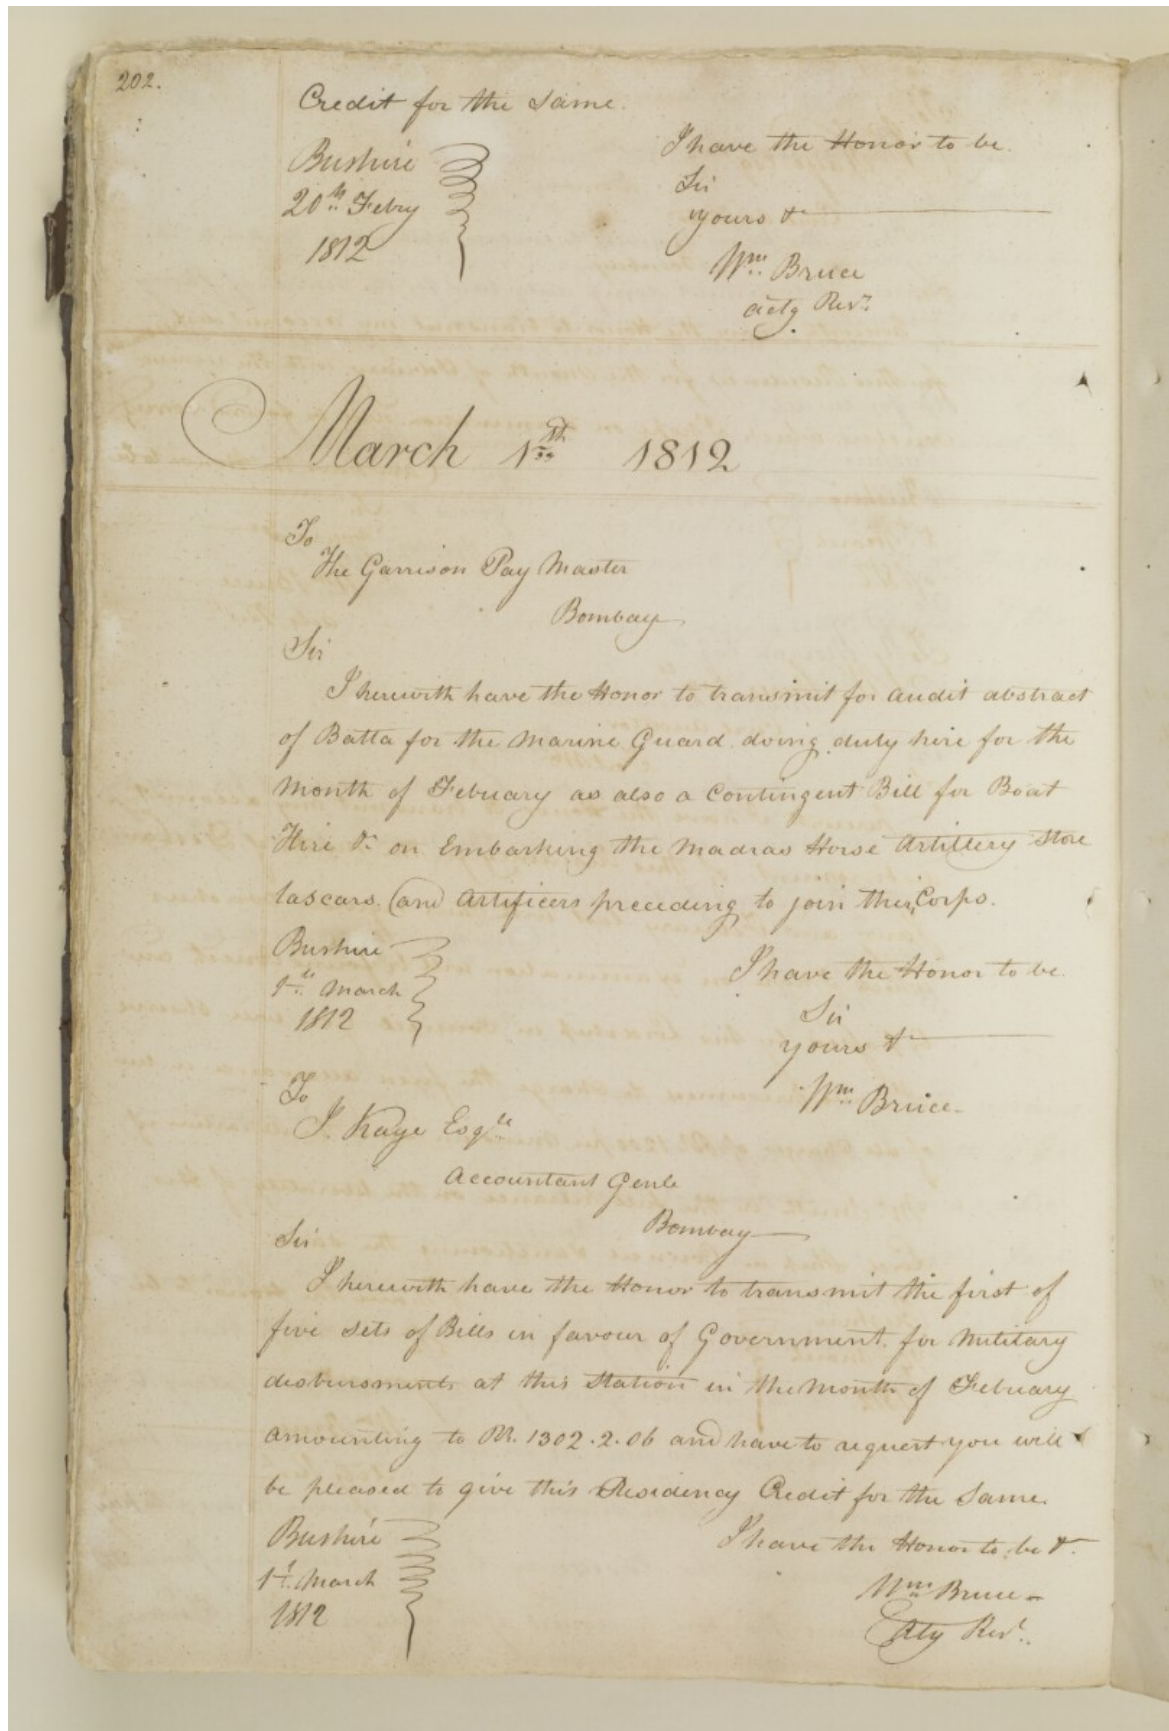 202.
Credit for the Same.
Bushire
20th Febry
1812
I have the Honor to be.
Sir
yours &
Wm Bruce
actg Rest.
March 1st 1812
To
The Garrison Pay Master
Bombay
Sir
I herewith have the Honor to transmit for audit abstract
of Batta for the Marine Guard doing duty here for the
Month of Febuary as also a Contingent Bill for Boat
Hire &c on Embarking the Madras Horse Artillery Store
lascars and Artificers preceding to join their Corps.
Bushire
1st March
1812
I have the Honor to be.
Sir
yours &
Wm Bruce
To
J. Kaye Esqre
Accountant Genl
Bombay
Sir
I herewith have the Honor to transmit the first of
five Sets of Bills in favour of Government for Military
disbursments at this Station in the Month of Febuary
amounting to 1302.2.06 and have to request you will
be pleased to give this Residency Credit for the Same.
Bushire
1st March
1812
I have the Honor to be &
Wm Bruce
Actg Rest.